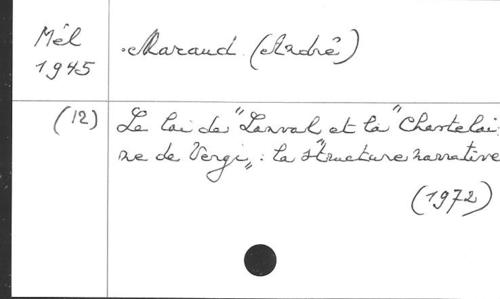 Mél
1945
Maraud (André)
(12)
Le lai de "Lanval et la "Chastelai
ne de Vergi" : la structure narrative
(1972)